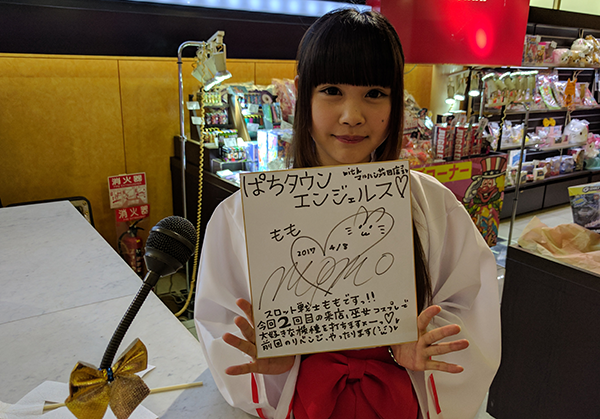 ぱちタウン with マルハン蒲田店さま
エンジェルス♡
もも
2017 4/8
momo
スロット戦士ももですっ!!
今回2回目の来店、巫女コスプレで
大好きな機種を打ちますよーっ♡
前回のリベンジ、やったります(
消火器
消火器
ーナー